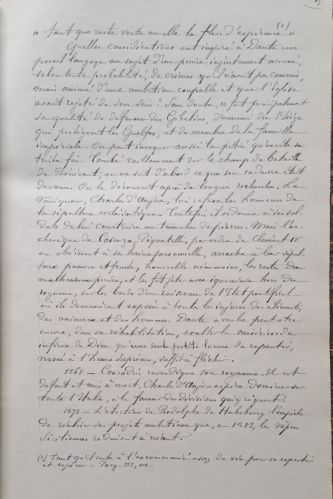 « Tant que reste verte en elle la fleur d'espérance. (1) »
Quelles considérations ont inspiré à Dante un
pareil langage au sujet d'un prince injustement accusé,
selon toute probabilité, de crimes qu'il n'avait pas commis,
mais animé d'une ambition coupable et que l'Église
avait rejeté de son sein ? Sans doute, ce fut principalement
sa qualité de défenseur des Gibelins, d'ennemi du St Siège
qui protégeait les Guelfes, et de membre de la famille
impériale. On peut invoquer aussi la pitié qu'excita sa
triste fin. Tombé vaillamment sur le champ de bataille
de Bénévent, on ne sut d'abord ce que son cadavre était
devenu. On le découvrit après de longues recherches. Le
vainqueur, Charles d'Anjou, lui refusa les honneurs de
la sépulture ecclésiastique. Toutefois il ordonna à ses sol-
dats de lui construire un tumulus de pierres. Mais l'ar-
chevêque de Cosenza, Pignatelli, par ordre de Clément IV
ou obéissant à sa haine personnelle, arracha à leur sépul-
ture pauvre et fruste, honorable néanmoins, les restes du
malheureux prince, et les fit jeter aux
royaume, sur les bords d'un ruisseau de l'État pontifical
où ils demeuraient exposés à toutes les injures du climat,
des animaux et des hommes. Dante a voulu peut-être
encore, dans sa réhabilitation, exalter la miséricorde
infinie de Dieu qu'une seule petite larme de repentir,
même à l'heure suprême, suffit à fléchir.
1268 — Conradin revendique son royaume. Il est
défait et mis à mort. Charles d'Anjou espère dominer sur
toute l'Italie, à la faveur des divisions qui y règnent.
1273 — L'élection de Rodolphe de Habsbourg l'empêche
de réaliser ses projets ambitieux que, en 1282, les Vêpres
Siciliennes réduisent à néant.
(1) Tant qu'il reste à l'excommunié assez de vie pour se repentir
et espérer. - Purg. III,